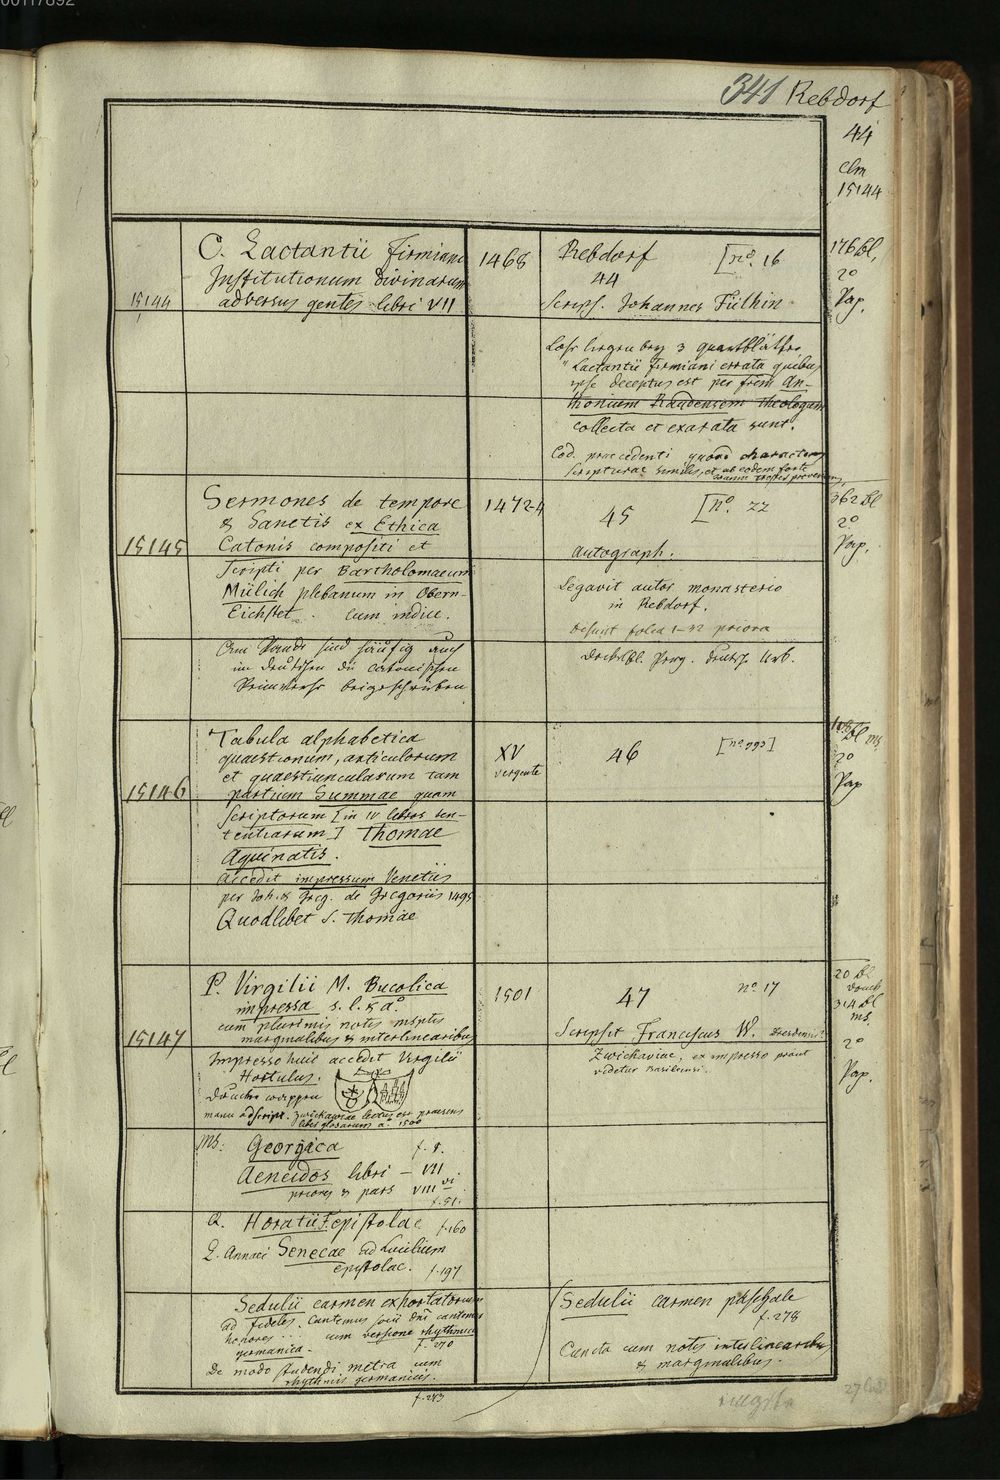 00117892
341 Rebdorf
44
Clm
15144
15144
C. Lactantii Firmiani
Institutionum divinarum
adversus gentes libri VII
1468
Rebdorf [no. 16
44
Scrips. Johannes Fülhin
176 Bl,
2°
Pap.
Lose liegen bey 3 quartblätter
"Lactantii Firmiani errata quibus
ipse deceptus est per frem An-
thonium Raudensem Theologum
collecta et exarata sunt.
Cod. praecedenti quoad characterem
scripturae similis, et ab eodem forte
15145
Sermones de tempore
& Sanctis ex Ethica
Catonis compositi et
scripti per Bartholomaeum
Mülich plebanum in Obern-
Eichstet. cum indice.
Am Rande sind häufig auch
im deutschen die catonischen
Reimverse beigeschrieben
1472-4
45 [no. 22
autograph.
Legavit autor monasterio
in Rebdorf.
Desunt folia 1-32 priora
Bl. Perg. deutsch. Urb.
362 Bl
2°
Pap.
15146
Tabula alphabetica
quaestionum, articulorum
et quaestiuncularum tam
partium Summae quam
scriptorum [in IV libros sen-
tentiarum] Thomae
Aquinatis.
Accedit impressum Venetiis
per Joh. & Greg. de Gregoriis 1495
Quodlibet S. Thomae
XV
vergente
46
Bl ms
2°
Pap
15147
P. Virgilii M. Bucolica
impressa s. l. & a°
cum plurimis notis msptis
marginalibus & interlinearibus
Impresso huic accedit Virgilii
Hortulus.
manu adscript. Zwickaviae lectus est praesens
liber glosarum a. 1500
Ms. Georgica f. 8.
Aeneidos libri - VII
priores & pars VIII vi
f. 51.
Q. Horatii F. epistolae f. 160
L. Annaei Senecae ad Lucilium
epistolae. f. 197
Sedulii carmen exhortatorium
ad fideles. Cantemus socii dni cantemus
honores ... cum versione rhythmica
germanica. f. 270
De modo studendi metra cum
rhythmis germanicis.
f. 273
1501
47 no 17
Scripsit Franciscus W. Dresdensis?
Zwickaviae, ex impresso prout
videtur Basileensi.
20 Bl
Druck
314 Bl
ms.
2°
Pap.
Sedulii carmen paschale
f. 278
Cuncta cum notis interlinearibus
& marginalibus.